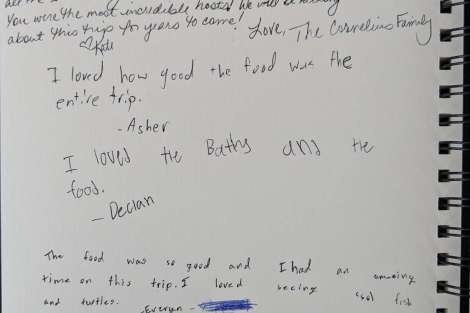 You were the most incredible hosts! We will be
about this trip for years to come!
Love, The Cornelius Family
♡Kate
I loved how good the food was the
entire trip.
-Asher
I loved the Baths and the
food.
- Declan
The food was so good and I had an amazing
time on this trip. I loved seeing cool fish
and turtles.